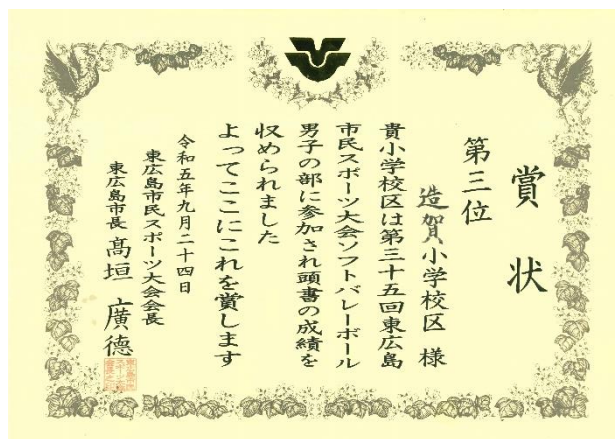 賞状
第三位
造賀小学校区 様
貴小学校区は第三十五回東広島
市民スポーツ大会ソフトバレーボール
男子の部に参加され頭書の成績を
収められました
よってここにこれを賞します
令和五年九月二十四日
東広島市民スポーツ大会会長
東広島市長 髙垣 廣德